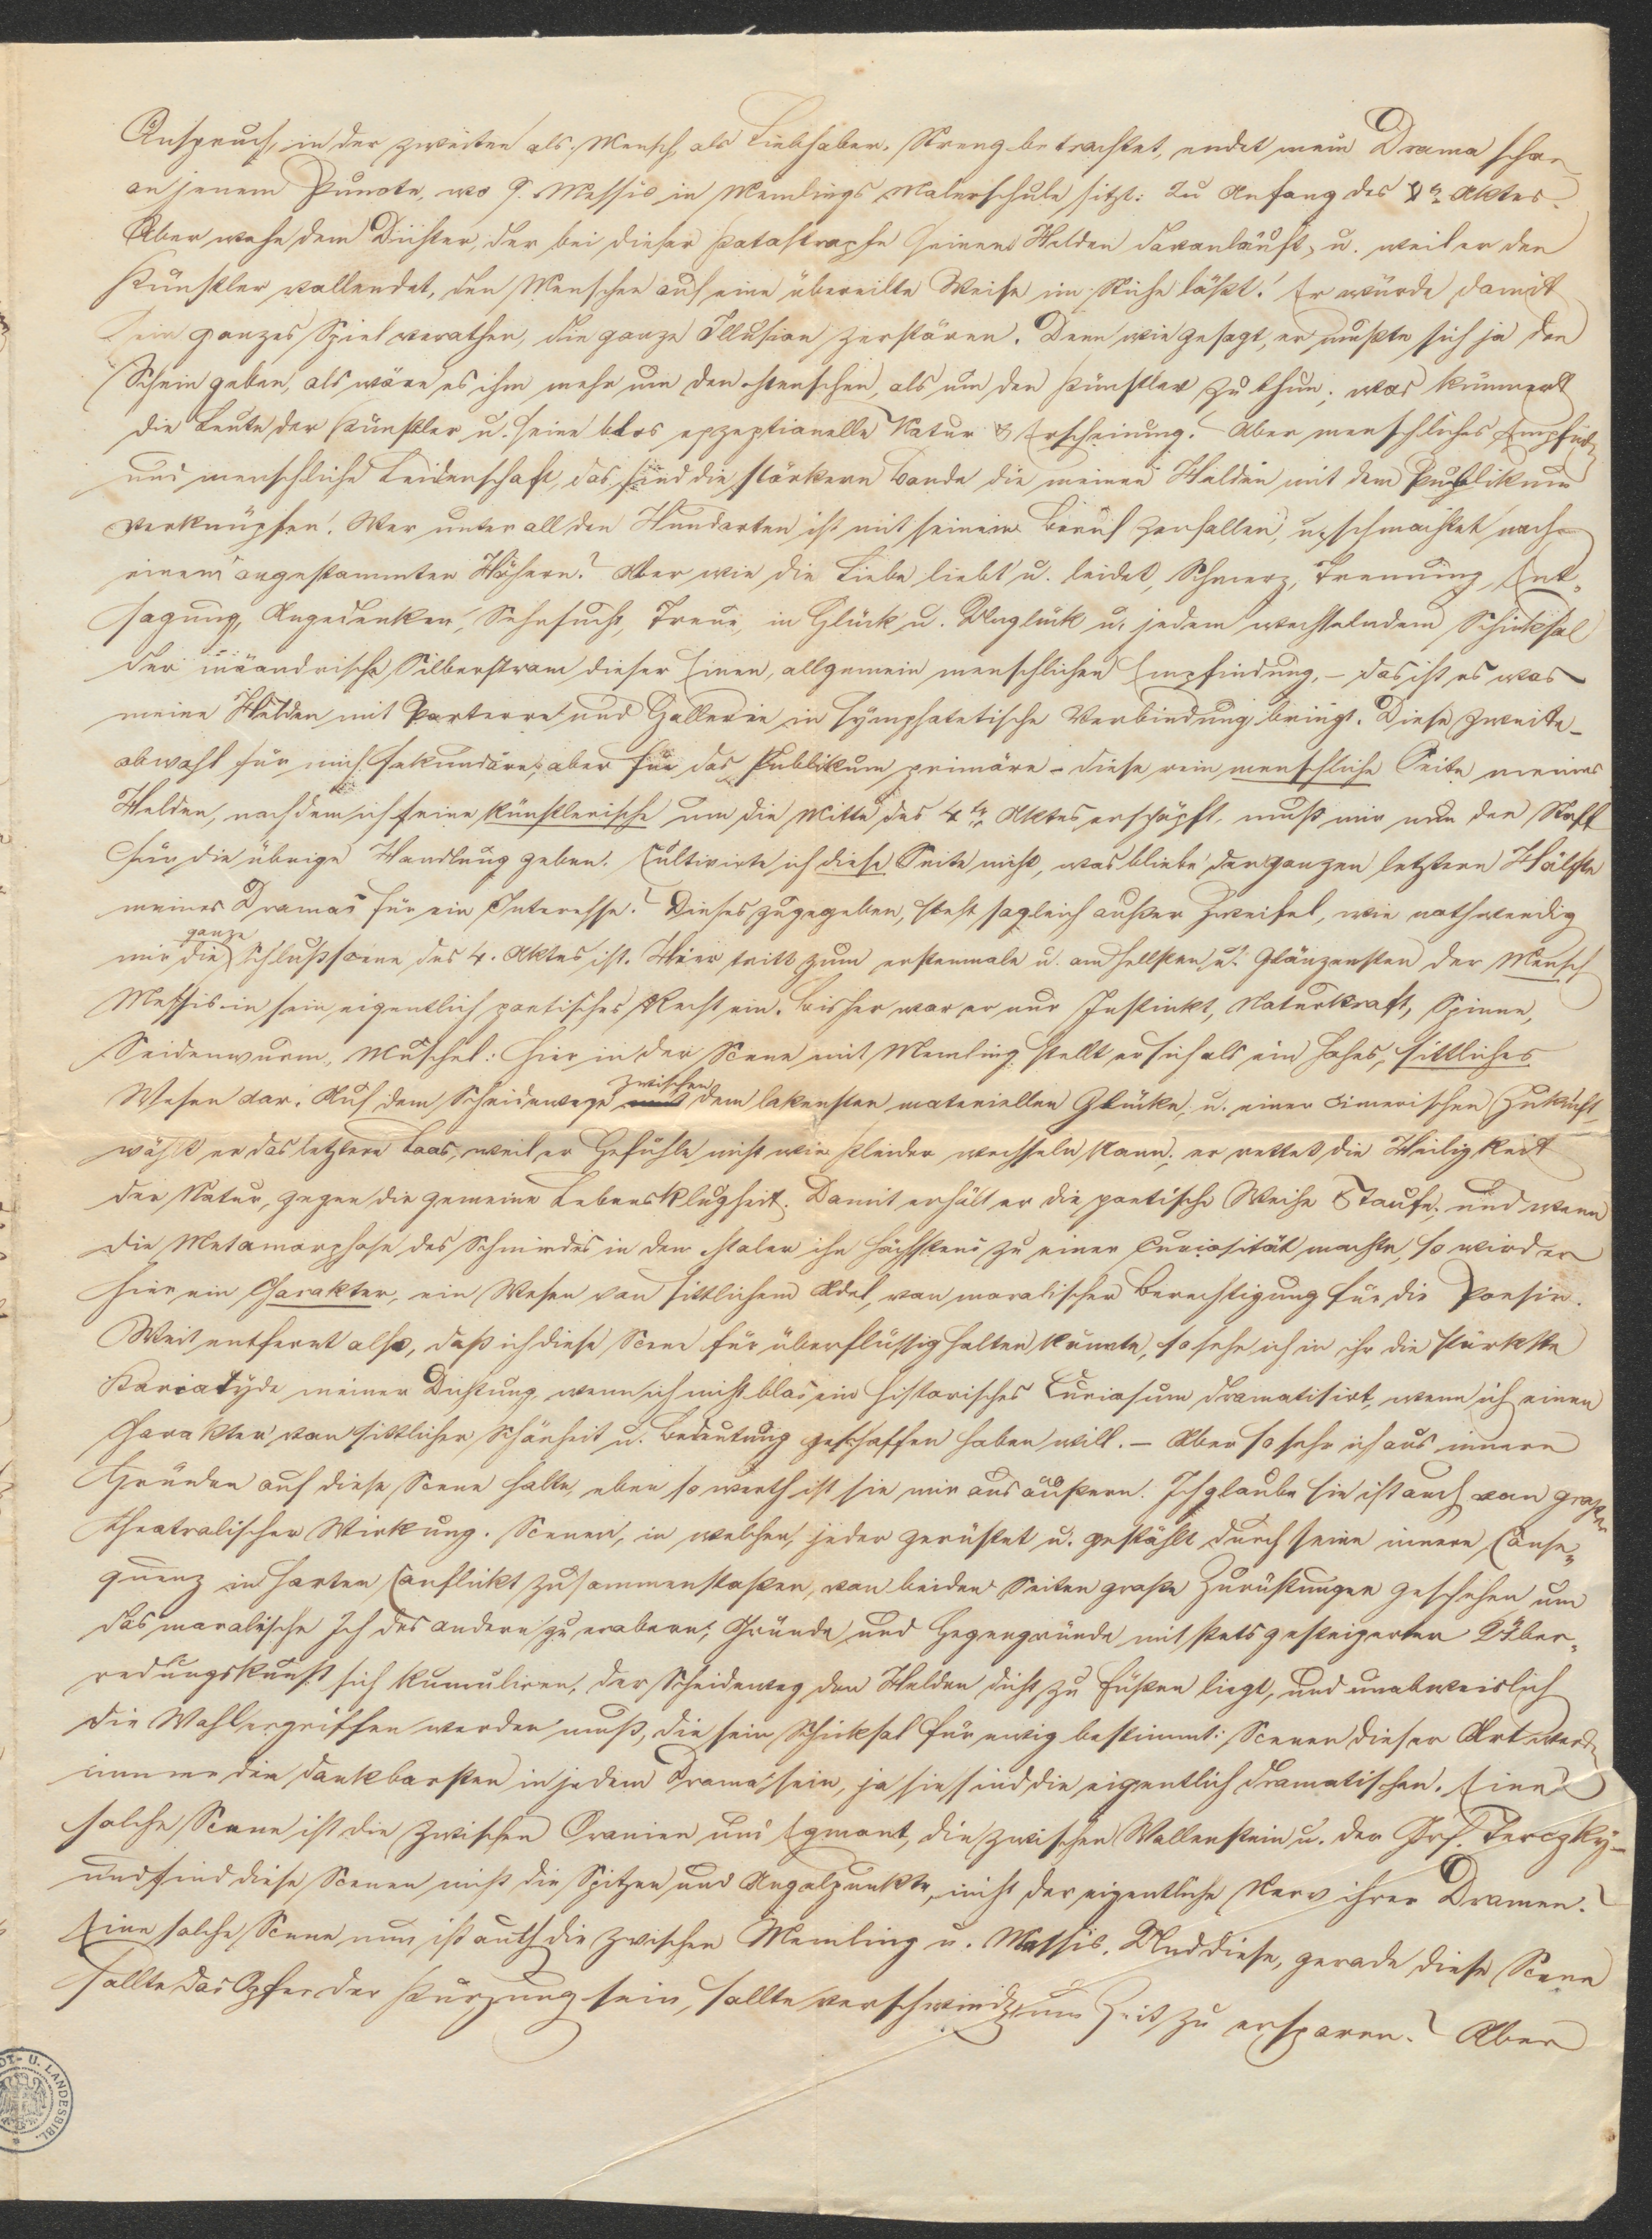 Anspruch, in der zweiten als Mensch, als Liebhaber. Streng betrachtet, endet mein Drama schon
an jenem Puncte, wo Q. Messis in Memlings Malerschule sitzt: Zu Anfang des Aktes.
Aber wehe dem Dichter, der bei dieser Katastrophe seinem Helden davonläuft, u. weil er den
Künstler vollendet, den Menschen auf eine übereilte Weise im Stiche läßt! Er würde damit
sein ganzes Spiel verrathen, die ganze Illusion zerstören. Denn wie gesagt, er mußte sich ja den
Schein geben, als wäre es ihm mehr um den Menschen, als um den Künstler zu thun; was kümmert
die Leute der Künstler u. seine blos exzeptionelle Natur & Erscheinung! Aber menschliches Empfinden
und menschliche Leidenschaft, das sind die stärkern Bande die meinen Helden mit dem Publikum
verknüpfen! Wer unter all den Hunderten ist mit seinem Beruf zerfallen, u. schmachtet nach
einem angestammten Höhern? Aber wie die Liebe liebt u. leidet, Schmerz, Trennung, Ent-
sagung, Angedenken, Sehnsucht, Treue, in Glück u. Unglück u. jedem wechselndem Schicksal
der mäandrische Silberstrom dieser Einen, allgemein menschlichen Empfindung, – das ist es was
meine Helden mit Parterre und Gallerie in sympathetische Verbindung bringt. Diese zweite –
obwohl für mich sekundäre, aber für das Publikum primäre – diese rein menschliche Seite meines
Helden, nachdem ich seine künstlerische um die Mitte des 4ten Aktes erschöpft, muß mir nun den Stoff
für die übrige Handlung geben. Cultivirte ich diese Seite nicht, was bliebe der ganzen letztern Hälfte
meines Dramas für ein Interesse? Dieses zugegeben, steht sogleich außer Zweifel, wie nothwendig
mir die ganze Schlußscene des 4. Aktes ist. Hier tritt zum erstenmale u. am hellsten u. glänzensten der Mensch
Messis in sein eigentlich poetisches Recht ein. Bisher war er nur Instinkt, Naturkraft, Spinne,
Seidenwurm, Muschel: hier in der Scene mit Memling stellt er sich als ein hohes, sittliches
Wesen dar. Auf dem Scheidewege zwischen dem lokensten materiellen Glücke, u. einer cimerischen Zukunft
wählt er das letztere Loos, weil er Gefühle nicht wie Kleider wechseln kann; er rettet die Heiligkeit
der Natur, gegen die gemeine Lebensklugheit. Damit erhält er die poetische Weihe & Taufe; und wenn
die Metamorphose des Schmiedes in den Maler ihn höchstens zu einer Curiosität machte, so wird er
hier ein Charakter, ein Wesen von sittlichem Adel, von moralischer Berechtigung für die Poesie.
Weit entfernt also, daß ich diese Scene für überflüssig halten könnte, so sehe ich in ihr die stärkste
Kariatyde meiner Dichtung, wenn ich nicht blos ein historisches Curiosum dramatisirt, wenn ich einen
Charakter von sittlicher Schönheit u. Bedeutung geschaffen haben will. – Aber so sehr ich aus innern
Gründen auf diese Scene halte, eben so werth ist sie mir aus äußern. Ich glaube sie ist auch von großer
theatralischer Wirkung. Scenen, in welchen, jeder gerüstet u. gestählt durch seine innere Conse-
quenz in harten Conflickt zusammenstoßen, von beiden Seiten große Zurüstungen geschehen um
das moralische Ich des andern zu erobern; Gründe und Gegengründe mit stets gesteigerter Über-
redungskunst sich kumuliren, der Scheideweg dem Helden dicht zu Füßen liegt, und unabweislich
die Wahl ergriffen werden muß, die sein Schicksal für ewig bestimmt: Scenen dieser Art werden
immer die dankbarsten in jedem Drama sein, ja sie sind die eigentlich dramatischen. Eine
solche Scene ist die zwischen Oranien und Egmont, die zwischen Wallenstein u. der Grf. Terczky –
und sind diese Scenen nicht die Spitzen und Angelpunkte, nicht der eigentliche Nerv ihrer Dramen?
Eine solche Scene nun ist auch die zwischen Memling u. Messis. Und diese, gerade diese Scene
sollte das Opfer der Kürzung sein, sollte verschwinden um Zeit zu ersparen? Aber
U. LANDESBIBL.